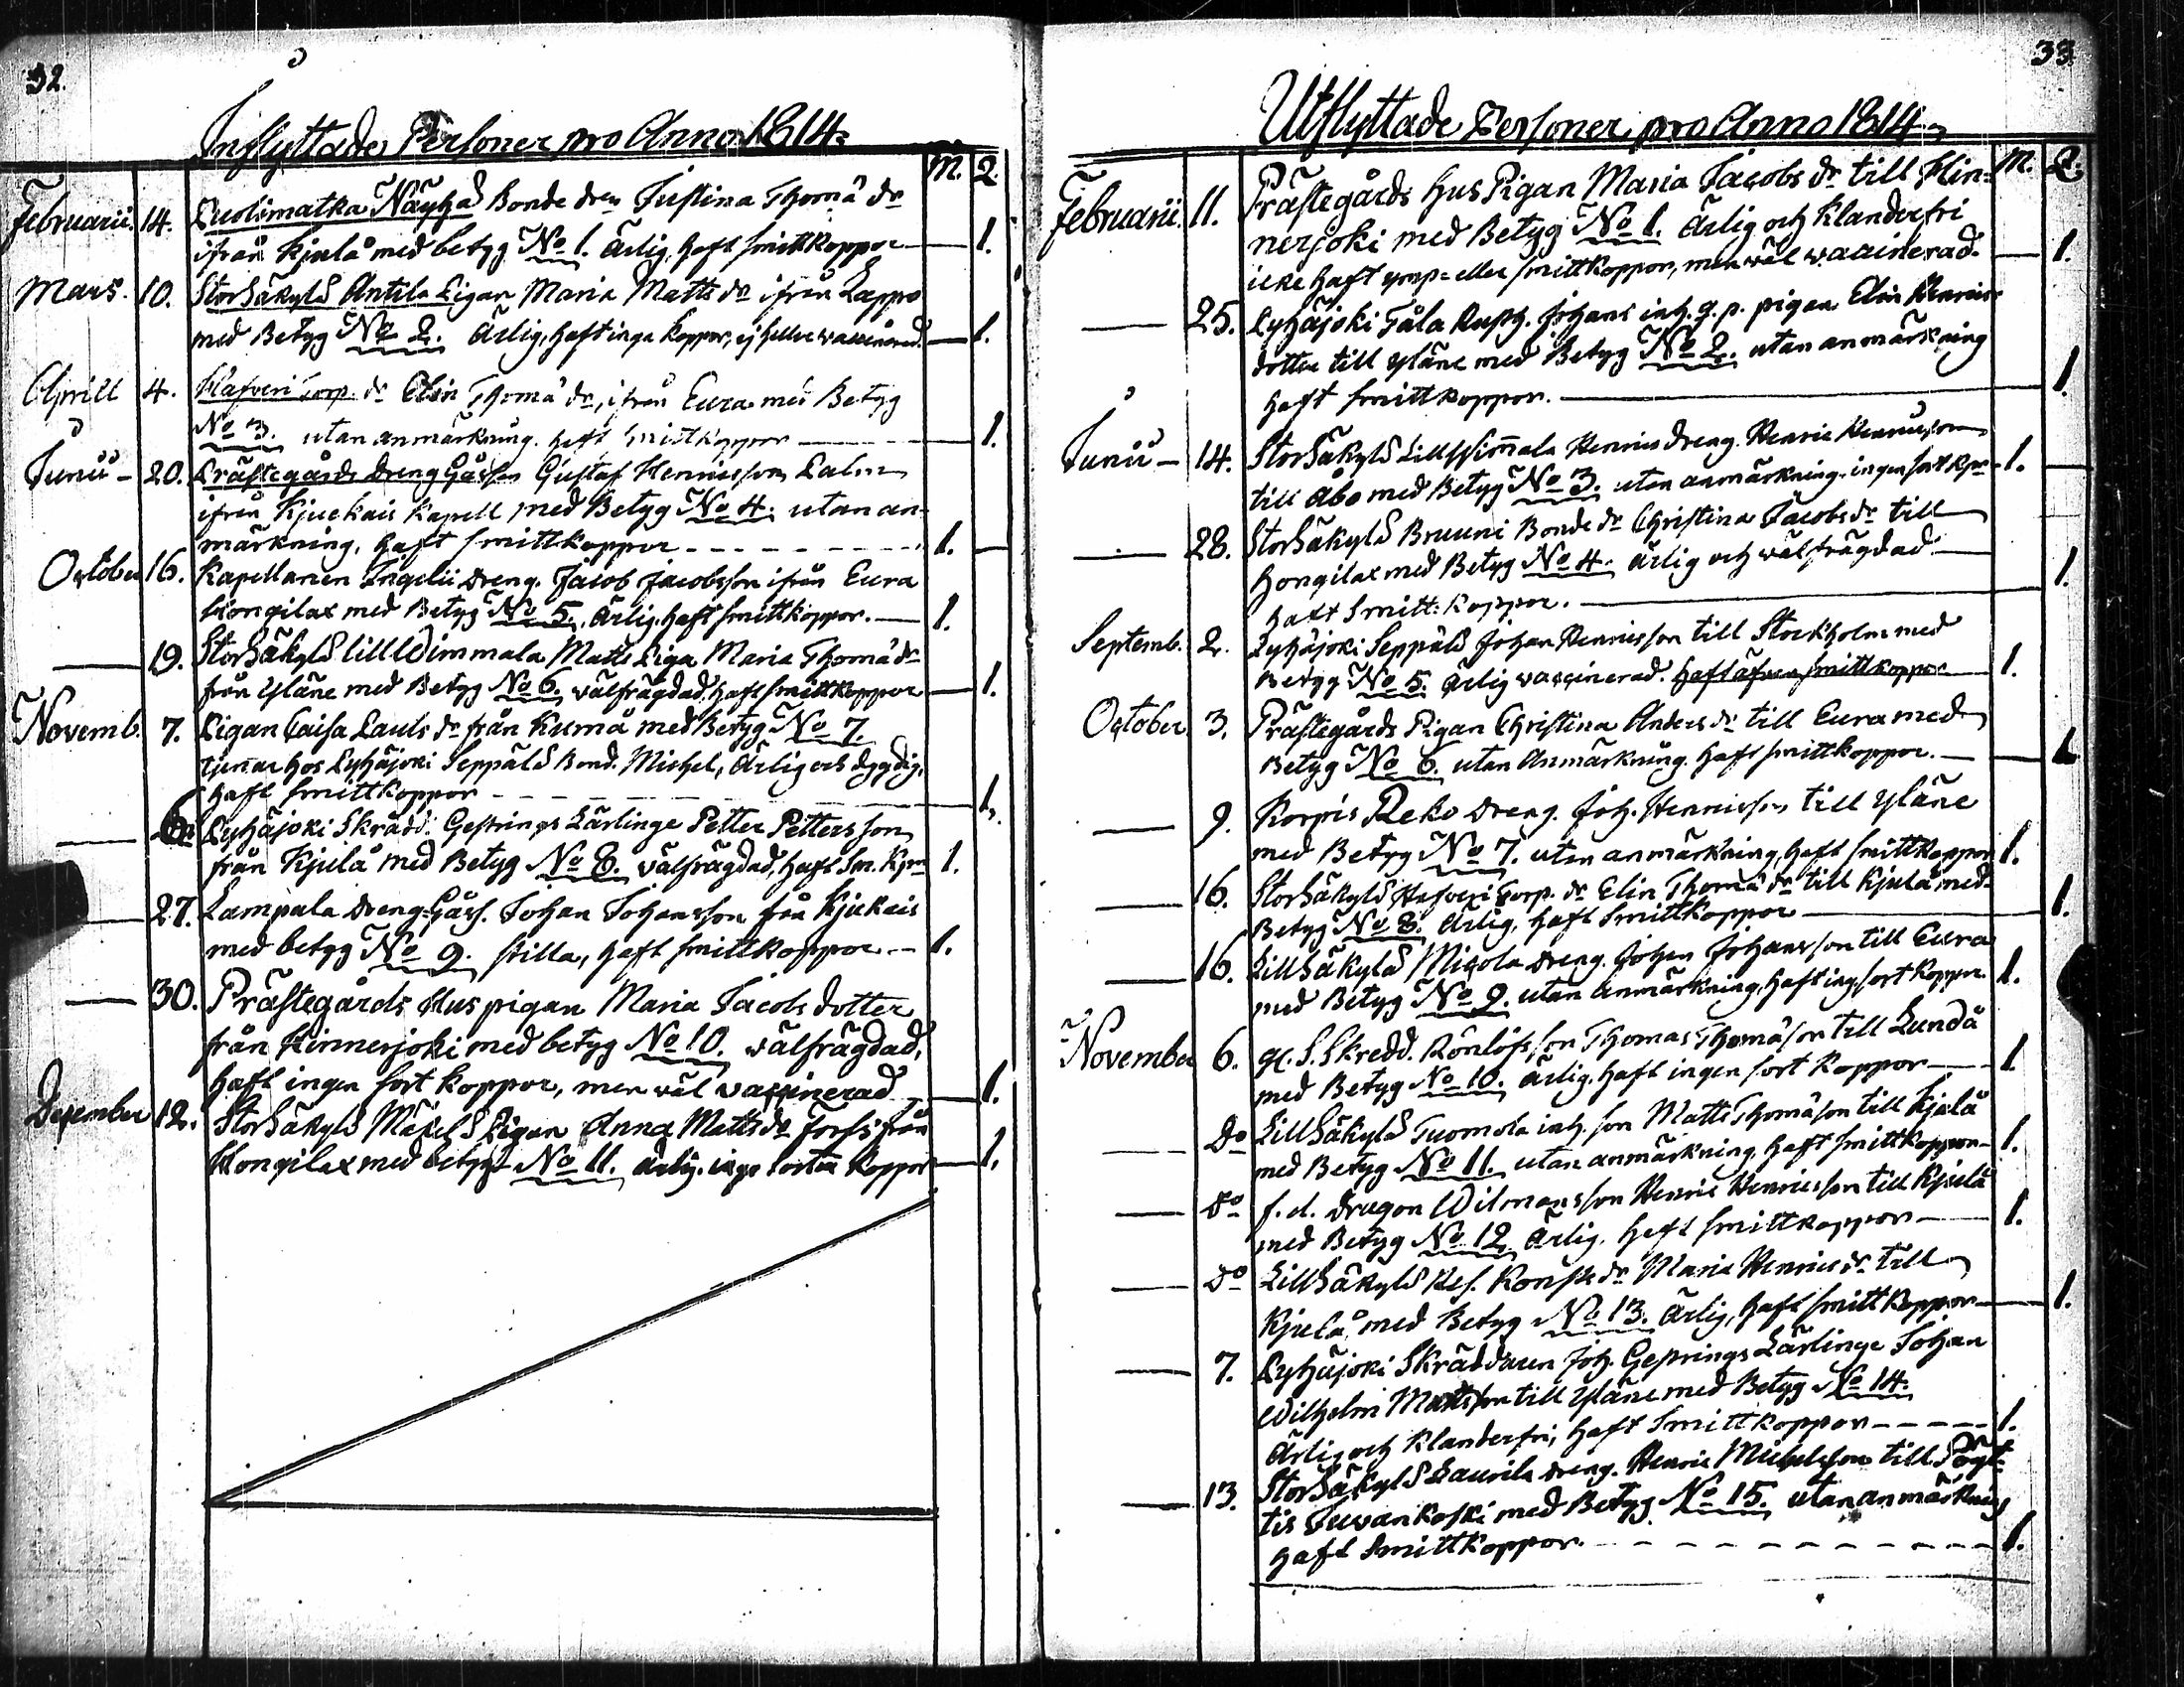 32.
Inflyttade Personer pro Anno 1814.
M. Q.
Februarii. 14. Luolimatka Näyhä Bonde dren Justina Thomä dr
ifrån Kjulå med betyg No 1. Ärlig, haft smittkoppor 1.
Mars. 10. Storsäkylä Antila Pigan Maria Matts dr ifrån Lappo
med Betyg No 2. Ärlig, haft inga koppor, ej heller vaccinerad. 1.
Aprill 4. Hafveri Torp. dr Elin Thomä dr, ifrån Eura med Betyg
No 3. utan anmärkning. haft smittkoppor 1.
Junii 20. Prästegårds Dreng Gåssen Gustaf Henricsson Palm
ifrån Kjuckais Kapell med Betyg No 4. utan an-
märkning, haft smittkoppor 1.
October 16. Kapellanen Ingelii Dreng. Jacob Jacobsson ifrån Eura
Hongilax med Betyg No 5. Ärlig, haft smittkoppor. 1.
19. Storsäkylä lill Wimmala Matts Piga Maria Thomä dr
från Yläne med Betyg No 6. välfrägdad, haft smittkoppor 1.
Novemb. 7. Pigan Caisa Pauls dr från Kumå med Betyg No 7.
tjenar hos Pyhäjoki Seppälä Bond. Michel, Ärlig och dygdig,
haft smittkoppor 1.
Pyhäjoki Skrädd. Gesprings Lärlinge Petter Pettersson
från Kjulå med Betyg No 8. välfrägdad, haft Sm. kpr 1.
27. Lampula Dreng-Gåss. Johan Johansson från Kjukais
med betyg No 9. stilla, haft smittkoppor 1.
30. Prästegårds Huspigan Maria Jacobs dotter
från Hinnerjoki med betyg No 10. välfrägdad,
haft ingen sort koppor, men wäl vaccinerad 1.
December 12. Storsäkylä Mäkelä Pigan Anna Matts dr Forss från
Hongilax med betyg No 11. ärlig. inga sorter koppor 1.
33.
Utflyttade Personer pro Anno 1814.
M. Q.
Februarii. 11. Prästegårds Hus Pigan Maria Jacobs dr till Hin-
nerjoki med Betyg No 1. Ärlig och klanderfri
icke haft ymp- eller smittkoppor, men wäl vaccinerad. 1.
25. Pyhäjoki Tåla Rusth. Johans inh. g. p. pigan Elin Henrics
dotter till Yläne med Betyg No 2. utan anmärkning
haft smittkoppor. 1.
Junii 14. Storsäkylä Lill Wimmala Henrics dreng. Henric Henricsson
till Åbo med Betyg No 3. utan anmärkning. ingen sort kpr 1.
28. Storsäkylä Bruuni Bonde dr Christina Jacobs dr till
Hongilax med Betyg No 4. ärlig och wälfrägdad
haft Smitt-koppor. 1.
Septemb. 2. Pyhäjoki Seppälä Johan Henricsson till Stockholm med
Betyg No 5. ärlig vaccinerad. haft äfven smittkoppor 1.
October. 3. Prästegårds Pigan Christina Anders dr till Eura med
Betyg No 6. utan Anmärkning. haft smittkoppor. 1.
9. Korpis Reko Dreng. Joh. Henricsson till Yläne
med Betyg No 7. utan anmärkning, haft smittkoppor 1.
16. Storsäkylä Hafveri Torp. dr Elin Thomä dr till Kjulå med
Betyg No 8. Ärlig, haft Smittkoppor 1.
16. Lillsäkylä Micola Dreng. Johan Johansson till Eura
med Betyg No 9. utan anmärkning, haft ing. sort koppor. 1.
November 6. gl. S. Skredd. Rönlöfs son Thomas Thomäson till Lundå
med Betyg No 10. ärlig. haft ingen sort koppor 1
Do Lillsäkylä Tuomola inh. son Matts Thomäson till Kjulå
med Betyg No 11. utan anmärkning, haft smittkoppor 1.
Do f. d. Dragon Wilmans son Henric Henricsson till Kjulå
med Betyg No 12. Ärlig. haft smittkoppor 1.
Do Lillsäkylä Maria Henrics dr till
Kjulå, med Betyg No 13. Ärlig, haft smittkoppor 1.
7. Pyhäjoki Skräddaren Joh. Gesprings Lärlinge Johan
Wilhelm Mattsson till Yläne med Betyg No 14.
Ärlig och klanderfri, haft Smittkoppor 1.
13. Storsäkylä Laurila Dreng. Henric Michelsson till Pöyt-
tis Juvankoski med Betyg No 15. utan anmärkning
haft Smittkoppor 1.